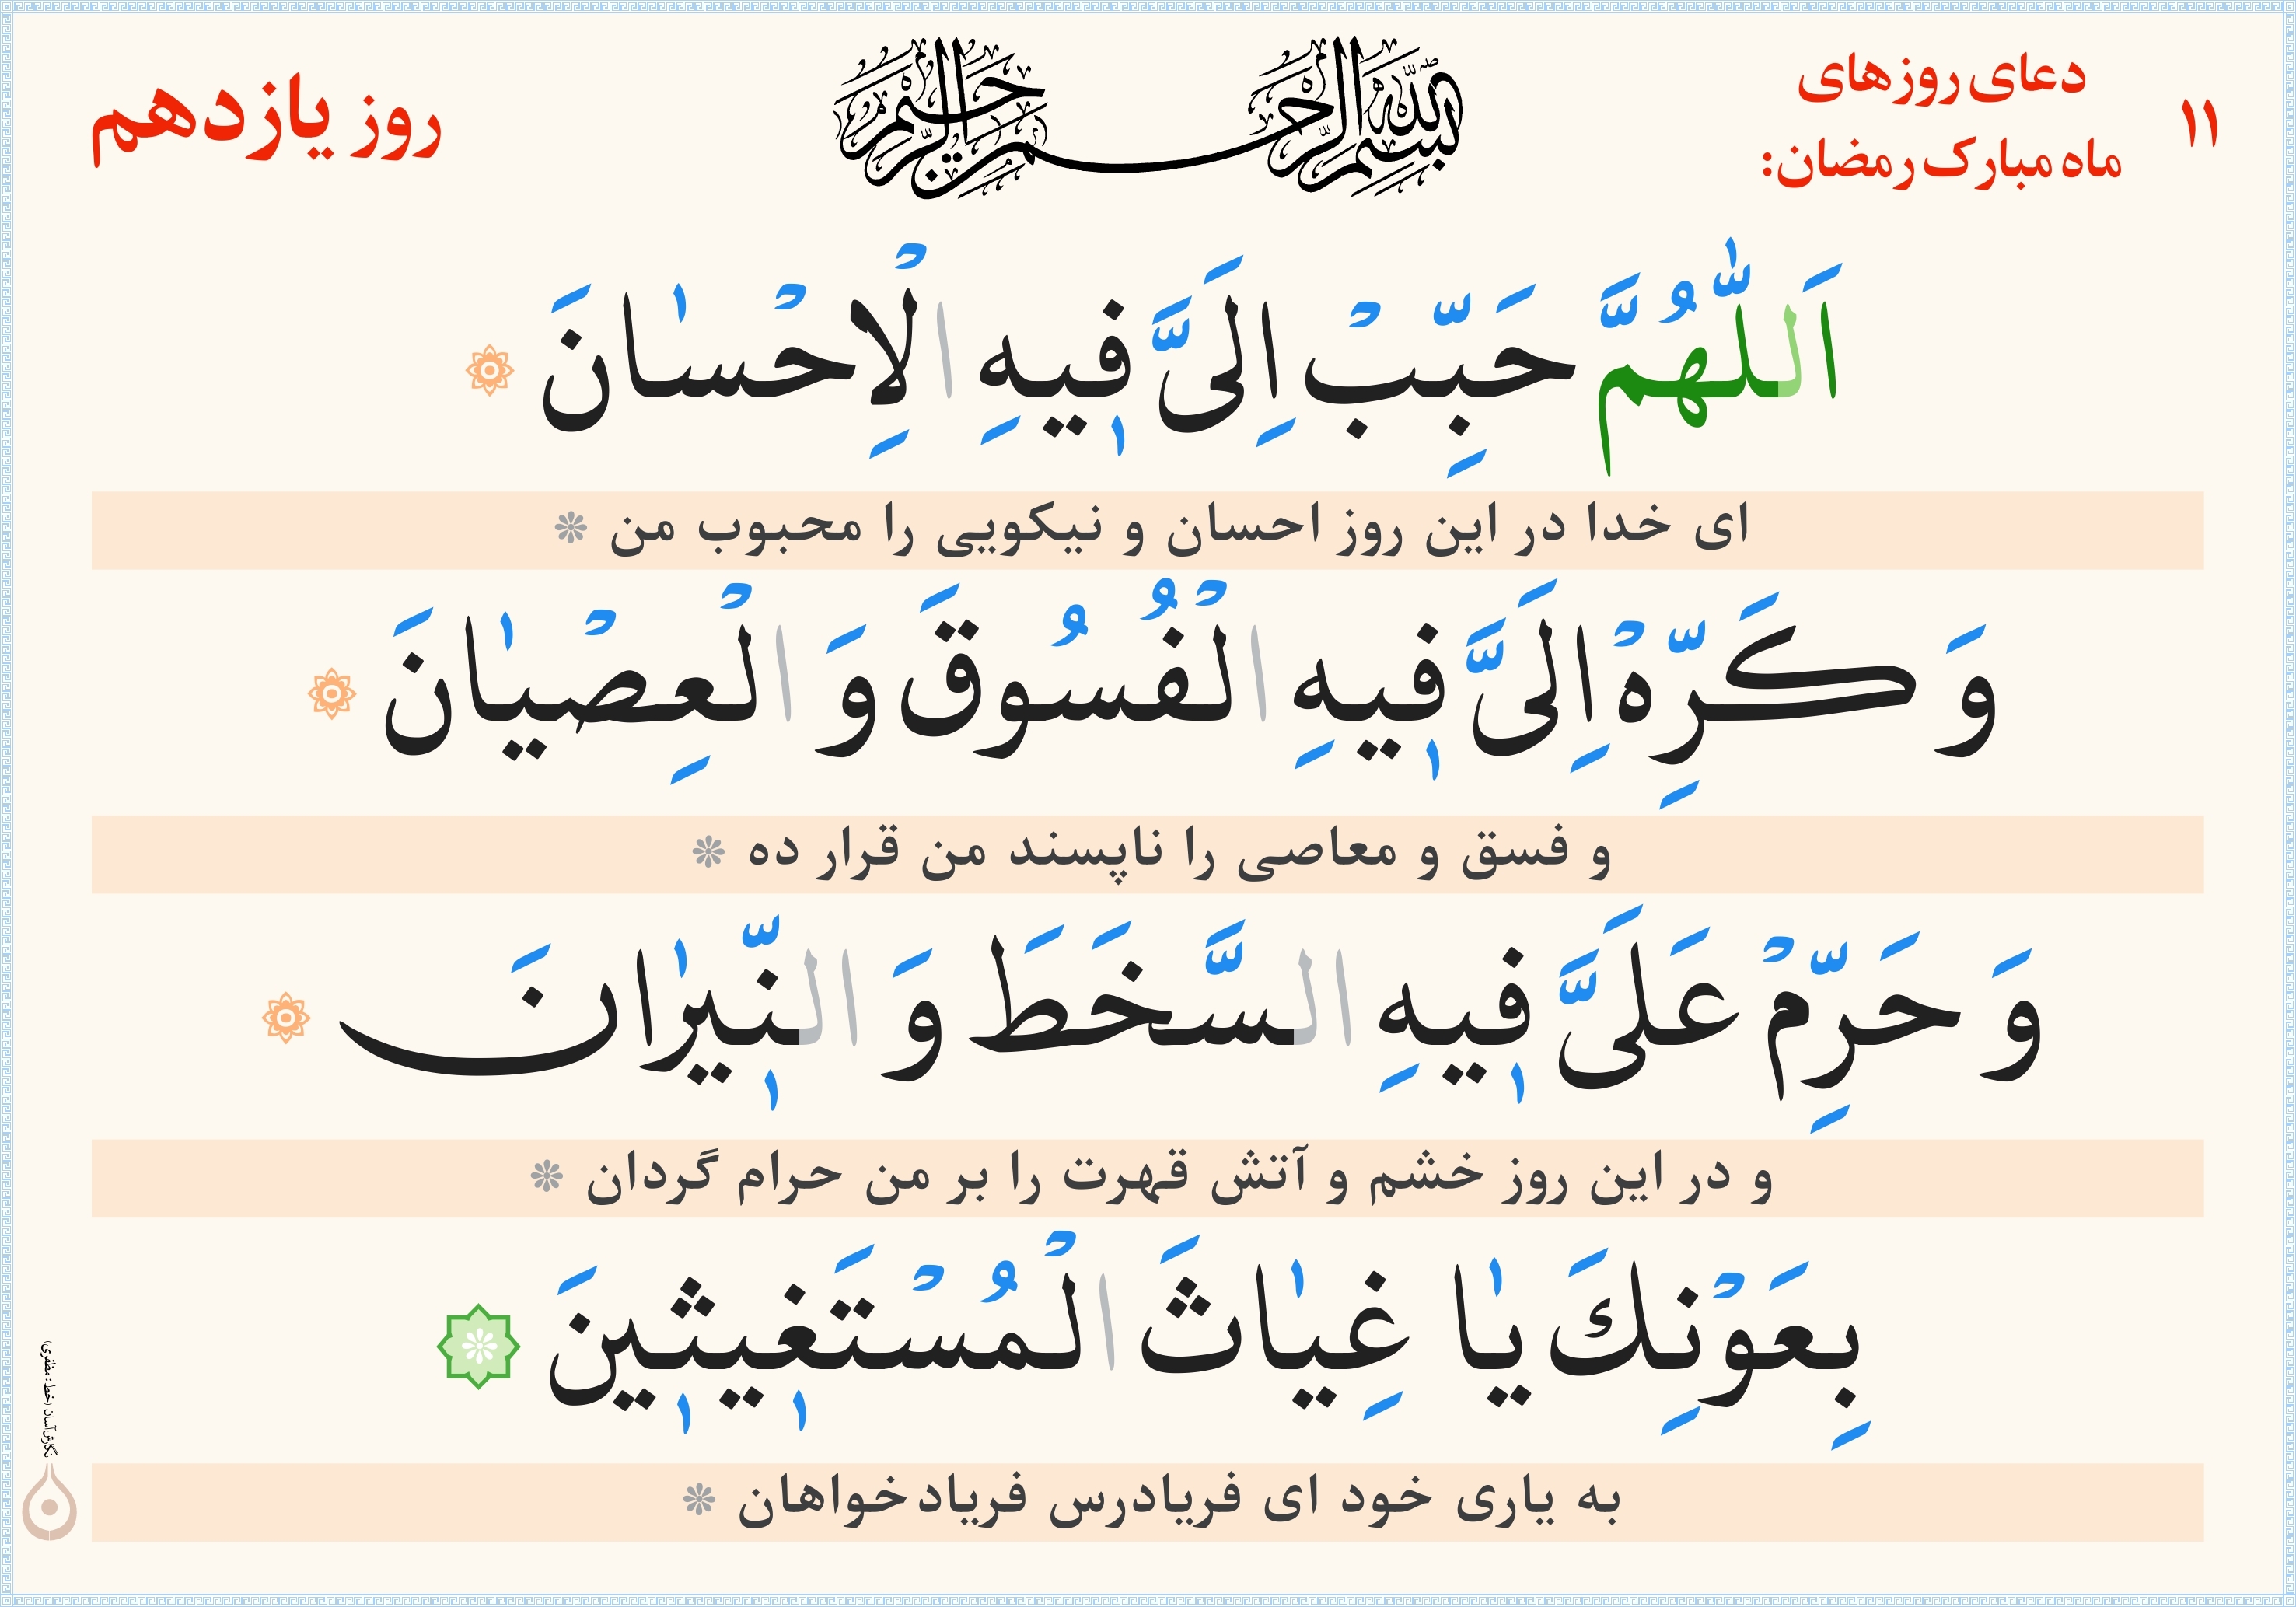 ۱۱
دعای روزهای
ماه مبارک رمضان:
بسم الله الرحمن الرحیم
روز یازدهم
اَللّٰهُمَّ حَبِّبْ اِلَیَّ فیٖهِ الْاِحْسٰانَ
ای خدا در این روز احسان و نیکویی را محبوب من
وَ کَرِّهْ اِلَیَّ فیٖهِ الْفُسُوقَ وَ الْعِصْیٰانَ
و فسق و معاصی را ناپسند من قرار ده
وَ حَرِّمْ عَلَیَّ فیٖهِ السَّخَطَ وَ النّیٖرٰانَ
و در این روز خشم و آتش قهرت را بر من حرام گردان
بِعَوْنِكَ یٰا غِیٰاثَ الْمُسْتَغیٖثیٖنَ
به یاری خود ای فریادرس فریادخواهان
نگارش آسان (خط: مظفری)